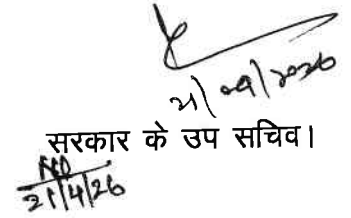 21/04/2026
सरकार के उप सचिव।
21/4/26